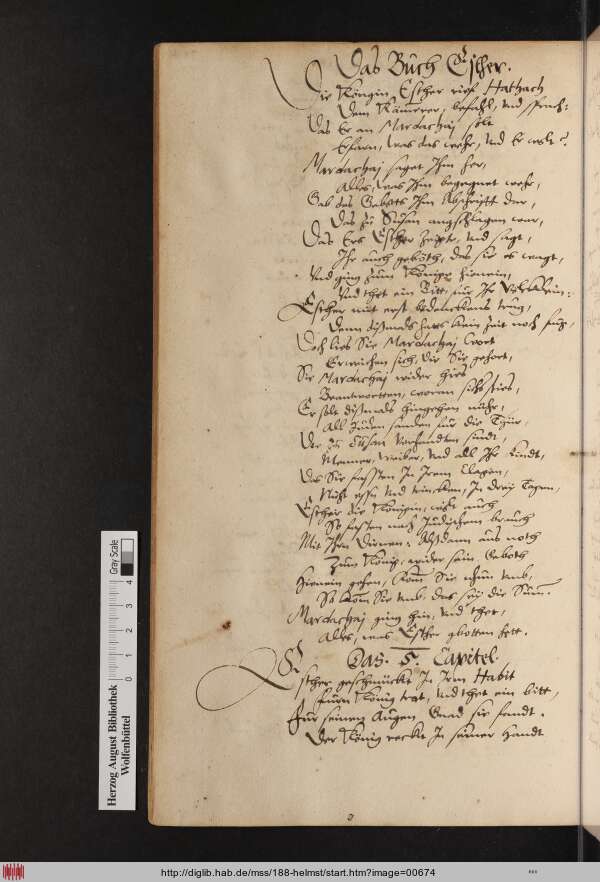 Das Buch Esther.
Die Königin Esther rief Hathach
Dem Kämerer, befahl, und sprach:
Das Er an Mardachaj solt
Erfarn, was das wehr, und Er wolt?
Mardachaj saget Ihm her,
Alles, was Ihm begegnet wehr,
Gab des Gebots Ihm Abschrifft der,
Das zu Susan angschlagen war,
Das Ers Esther zeigte, und sagt,
Ihr auch geböth, das sie es wagt,
Und ging zum Könige hienein,
Und thet ein Bitt, für Ihr Völcklein:
Esther mit erst bedenckens trug,
Denn dißmals
Doch lies Sie Mardachaj wort
die Sie gehort,
Sie Mardachaj wider hies
Beantwortten, woran sichs sties,
Er solt dißmals hingehen mehr,
All Juden samlen für die Thür,
Die zu Susan verhandten sindt,
Menner, weiber, und all Ihr Kindt,
Das Sie fassten In Irem Clagen,
Nicht essn und trincken, In drey Tagen,
Esther die Königin, wolt auch
So fasten nach Jüdischem brauch
Mit Ihrn Dirnen: Alßdann aus noth
Zum König, wider sein Geboth
Hienein gehen, Kom Sie
So kom Sie umb, das sey die Sum.
Mardachaj ging hin, und thet,
Alles, was Esther gbotten hett.
Das. 5. Capitel.
Esther geschmückt In Irm Habit
Fürn König trat, und thet ein bitt,
Für seinen Augen Gnad sie fandt.
Der König reckt In seiner Handt
Herzog August Bibliothek
Wolfenbüttel
0 1 2 3 4
Gray Scale
http://diglib.hab.de/mss/188-helmst/start.htm?image=00674